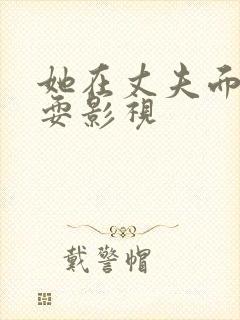 她在丈夫而
耍影視
戴警帽